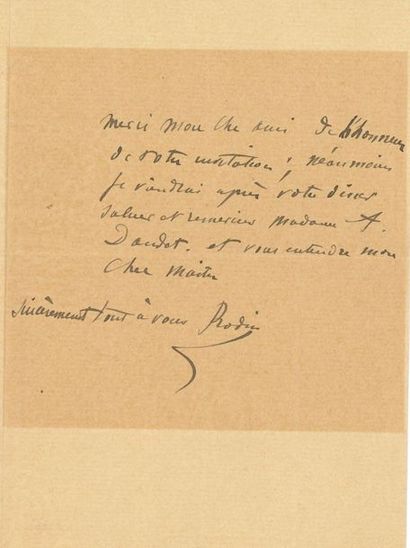 Merci mon cher ami de l'honneur
de votre invitation ; néanmoins
je viendrai après votre dîner
saluer et remercier madame A.
Daudet. et vous entendre mon
cher maître
sincèrement tout à vous Rodin